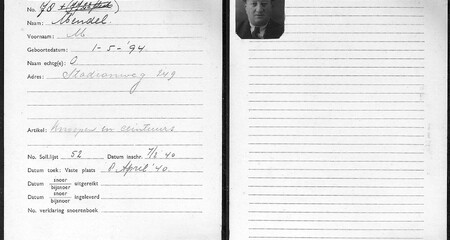 No. 78
Naam: Mendel
Voornaam: M
Geboortedatum: 1-5-'94
Naam echtg(e): O
Adres: Stadionweg 249
Artikel: en
No. Soll.lijst 52 Datum inschr. 7/2 40
Datum toek: Vaste plaats 8 April '40.
Datum snoer / bijsnoer uitgereikt
Datum snoer / bijsnoer ingeleverd
No. verklaring snoerenboek